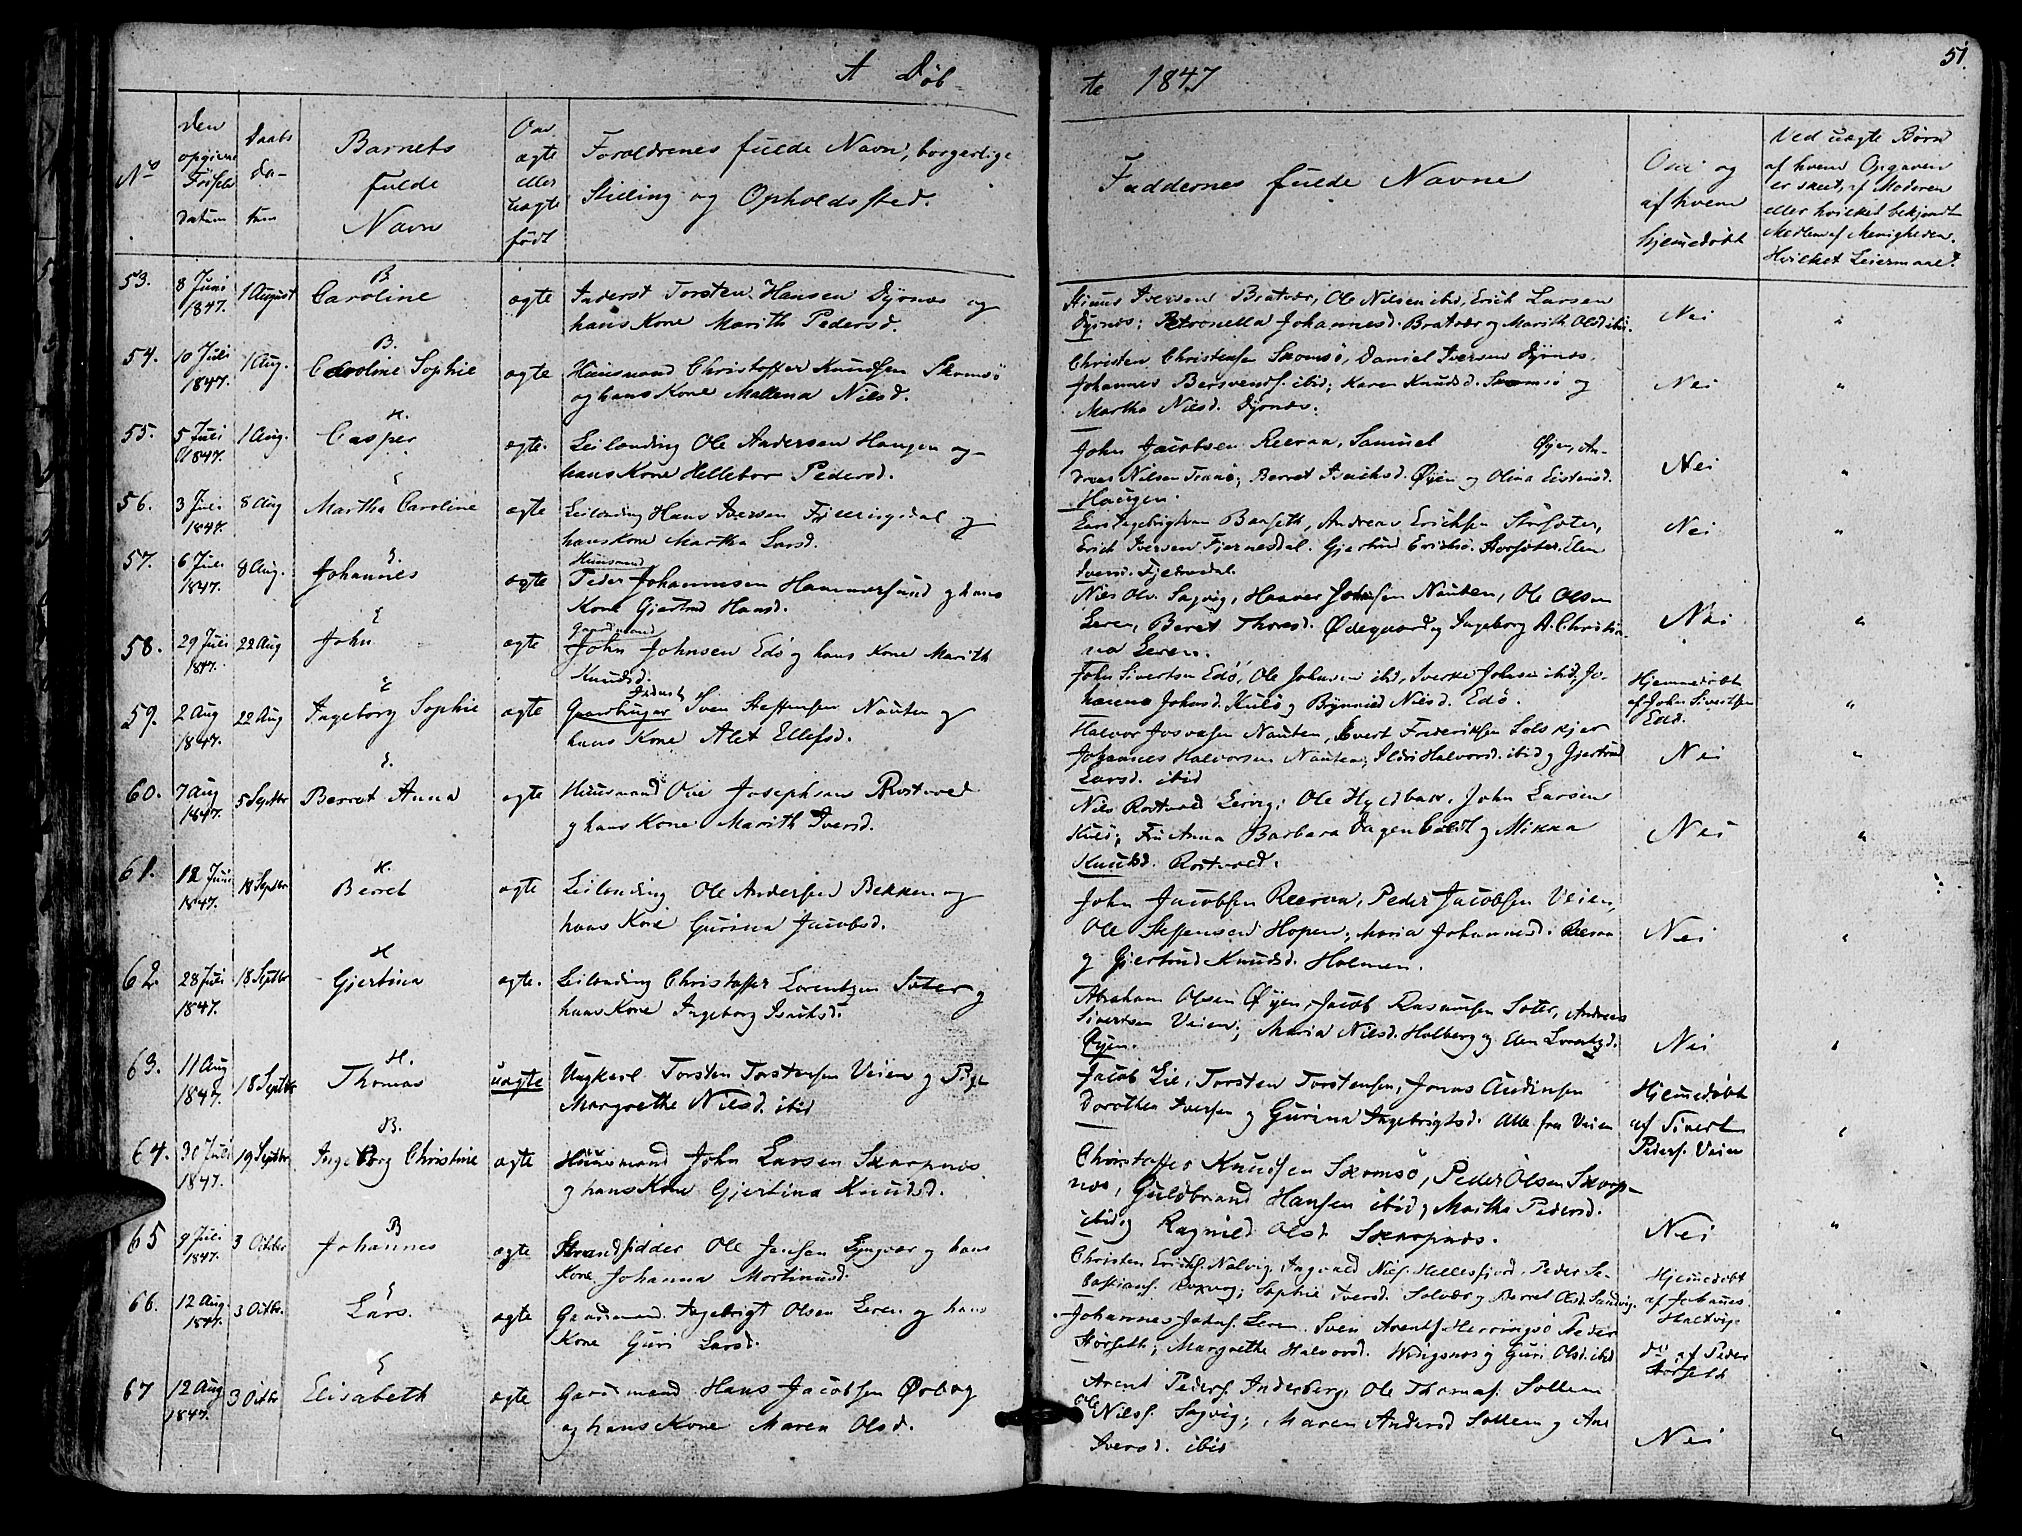 A Døb-
te 1847
51.
No
Den opgivne Fødsels Datum
Daabs Da-tum
Barnets fulde Navn
Om ægte eller uægte født
Forældrenes fulde Navn, borgerlige Stilling og Opholdssted.
Faddernes fulde Navne
Om og af hvem hjemmedøbt
Ved uægte Børn af hvem Opgaven er skeet, af Moderen eller hvilket bekjendt Medlem af Menigheden. Hvilket Leiermaal?
53. 8 Juni 1847. 1 August B Caroline ægte Inderst Torsten Hansen Dyrnæs og
hans Kone Marith Pedersd.
Iversen Bratvær, Ole Nilsen ibid, Erich Larsen
Dyrnæs; Petronella Johannesd. Bratvær og Marith Olsd ibid. Nei "
54. 10 Juli 1847. 1 Aug. B. Caroline Sophie ægte Huusmand Christoffer Knudsen Skomsø
og hans Kone Mallena Nilsd.
Christen Christensen Skomsø, Daniel Iversen Dyrnæs,
Johannes Bersvends. ibid; Karen Knudsd. Skomsø og
Martha Nilsd. Dyrnæs. Nei "
55. 5 Juli 1847. 1 Aug. H. Casper ægte. Leilending Ole Andersen Haugen og
hans Kone Hellebor Pedersd.
John Jacobsen Reeraa, Samuel Øyen, An-
dreas Nilsen; Berret Isachsd. Øyen og Olina Eistensd.
Haugen. Nei "
56. 3 Juli 1847. 8 Aug E Martha Caroline ægte Leilending Hans Iversen og
hans Kone Martha Larsd.
Lars Ingebrigtsen, Andreas Erichsen Storsæter,
Erich Iversen. Gjertrud Erichsd. Storsæter. Elen
Iversd. Nei "
57. 6 Juli 1847. 8 Aug. E. Johannes ægte Huusmand
Peder Johannesen Hammersund og hans
Kone Gjertrud Hansd.
Nils Ols. Sagvig, Haaver Johnsen Nauten, Ole Olsen
Leren, Beret Thoresd. Ødegaard og Ingeborg A. Christia-
na Leren. Nei "
58. 29 Juli 1847. 22 Aug E John ægte Gaardmand
John Johnsen Edø og hans Kone Marith
Knudsd.
John Sivertsen Edø, Ole Johnsen ibid, Sverke Johnsen ibid, Jo-
hanna Johnsd. Kulø og Brynnild Nilsd. Edø.
Hjemmedøbt af John Sivertsen Edø. "
59. 2 Aug 1847. 22 Aug E Ingeborg Sophie ægte Inderst
Gaardbruger Sven Steffensen Nauten og
hans Kone Alet Ellefsd.
Halvor Josvasen Nauten, Evert Frederiksen Solskjer
Johannes Halvorsen Nauten, Ildri Halvorsd. ibid og Gjertrud
Larsd. ibid Nei "
60. 7 Aug 1847. 5 Septbr E. Berret Anna ægte Huusmand Ole Josephsen Rostvold
og hans Kone Marith Iversd.
Nils Rostvold Lervig; Ole Hyldbak, John Larsen
Kulø; Fru Anna Barbara Dagenboldt og Mikaa
Knudsd. Rostvold. Nei "
61. 12 Juni 1847. 18 Septbr H. Berret ægte Leilending Ole Andersen Bekken og
hans Kone Gurina Jacobsd.
John Jacobsen Reeraa, Peder Jacobsen Veien,
Ole Steffensen Hopen, Maria Johannesd. Reeraa
og Gjertrud Knudsd. Holmen. Nei "
62. 28 Juli 1847. 18 Septbr H Gjertina ægte. Leilending Christoffer Lorentzen Sæter og
hans Kone Ingeborg Isachsd.
Abraham Olsen Øyen, Jacob Rasmusen Sæter, Andreas
Sivertsen Veien; Maria Nilsd. Holberg og Elen Lorentzd.
Øyen. Nei "
63. 11 Aug 1847. 18 Septbr H. Thomas uægte Ungkarl Torsten Torstensen Veien og Pige
Margrethe Nilsd. ibid
Jacob Lie, Torsten Torstensen, Jonas Audinsen
Dorothea Iversen og Gurina Ingebrigtsd. Alle fra Veien
Hjemmedøbt af Sivert Peders. Veien "
64. 30 Juli 1847. 19 Septbr. B. Ingeborg Christine ægte Huusmand John Larsen Skarpnæs
og hans Kone Gjertina Knudsd.
Christoffer Knudsen Skomsø, Peder Olsen Skarp-
næs, Guldbrand Hansen ibid og Martha Pedersd.
ibid og Ragnild Olsd. Skarpnæs. Nei "
65 9 Juli 1847. 3 Octbr B Johannes ægte Strandsidder Ole Jensen Lyngvær og hans
Kone Johanna Mortinusd.
Christen Erichs. Nalvig, Ingvald Nils. Hellesfjord, Peder Se-
bastians.; Sophie Iversd. Solvær og Berret Olsd. Sandvig.
Hjemmedøbt af Johannes
66. 12 Aug. 1847. 3 Octbr. E Lars. ægte Gaardmand Ingebrigt Olsen Leren og hans
Kone Guri Larsd.
Johannes Johns. Leren. Sven Arents. Herringsø Peder
Storseth; Margrethe Halvorsd. og Guri Olsd. ibid
do af Peder Storseth "
67 12 Aug 1847. 3 Octbr E Elisabeth ægte Gaardmand Hans Jacobsen Ørbog
og hans Kone Maren Olsd.
Arent Peders. Anderberg, Ole Thomas. Sollem
Ole Nilss. Sagvig; Maren Andersd Sollem og Ane
Iversd. ibid Nei "